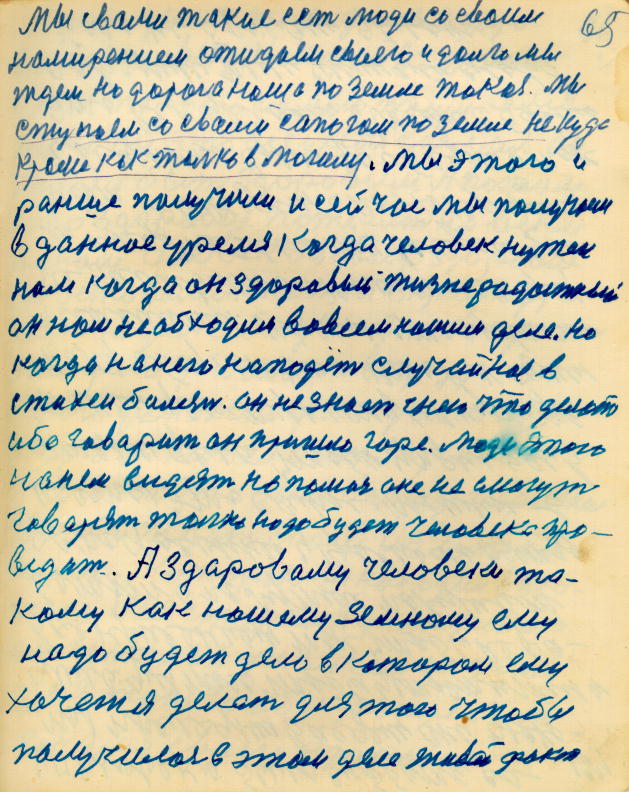 65
Мы свами такие ест люди со своим
намирением ожидаем своего и долго мы
ждем но дорога наша по земле такая. Мы
ступаем со своей сапогом по земле некуда
кроме как толко в могилу. Мы этого и
ранше получили и сейчас мы получаем
в данное уремя когда человек нужен
нам когда он здоровый жизнерадостный
он нам необходим вовсем нашим деле. но
когда на него нападёт случайное в
стихеи болезт. он не знает чего что делать
ибо гаварит он пришло горе. люди этого
на нем видят но помоч оне не смогут
говарят толко надо будет человека про-
видат. А здаровому человеку та-
кому как нашему земному ему
надо будет дело в котором ему
хочется делат для того чтобы
получился в этом деле живой факт